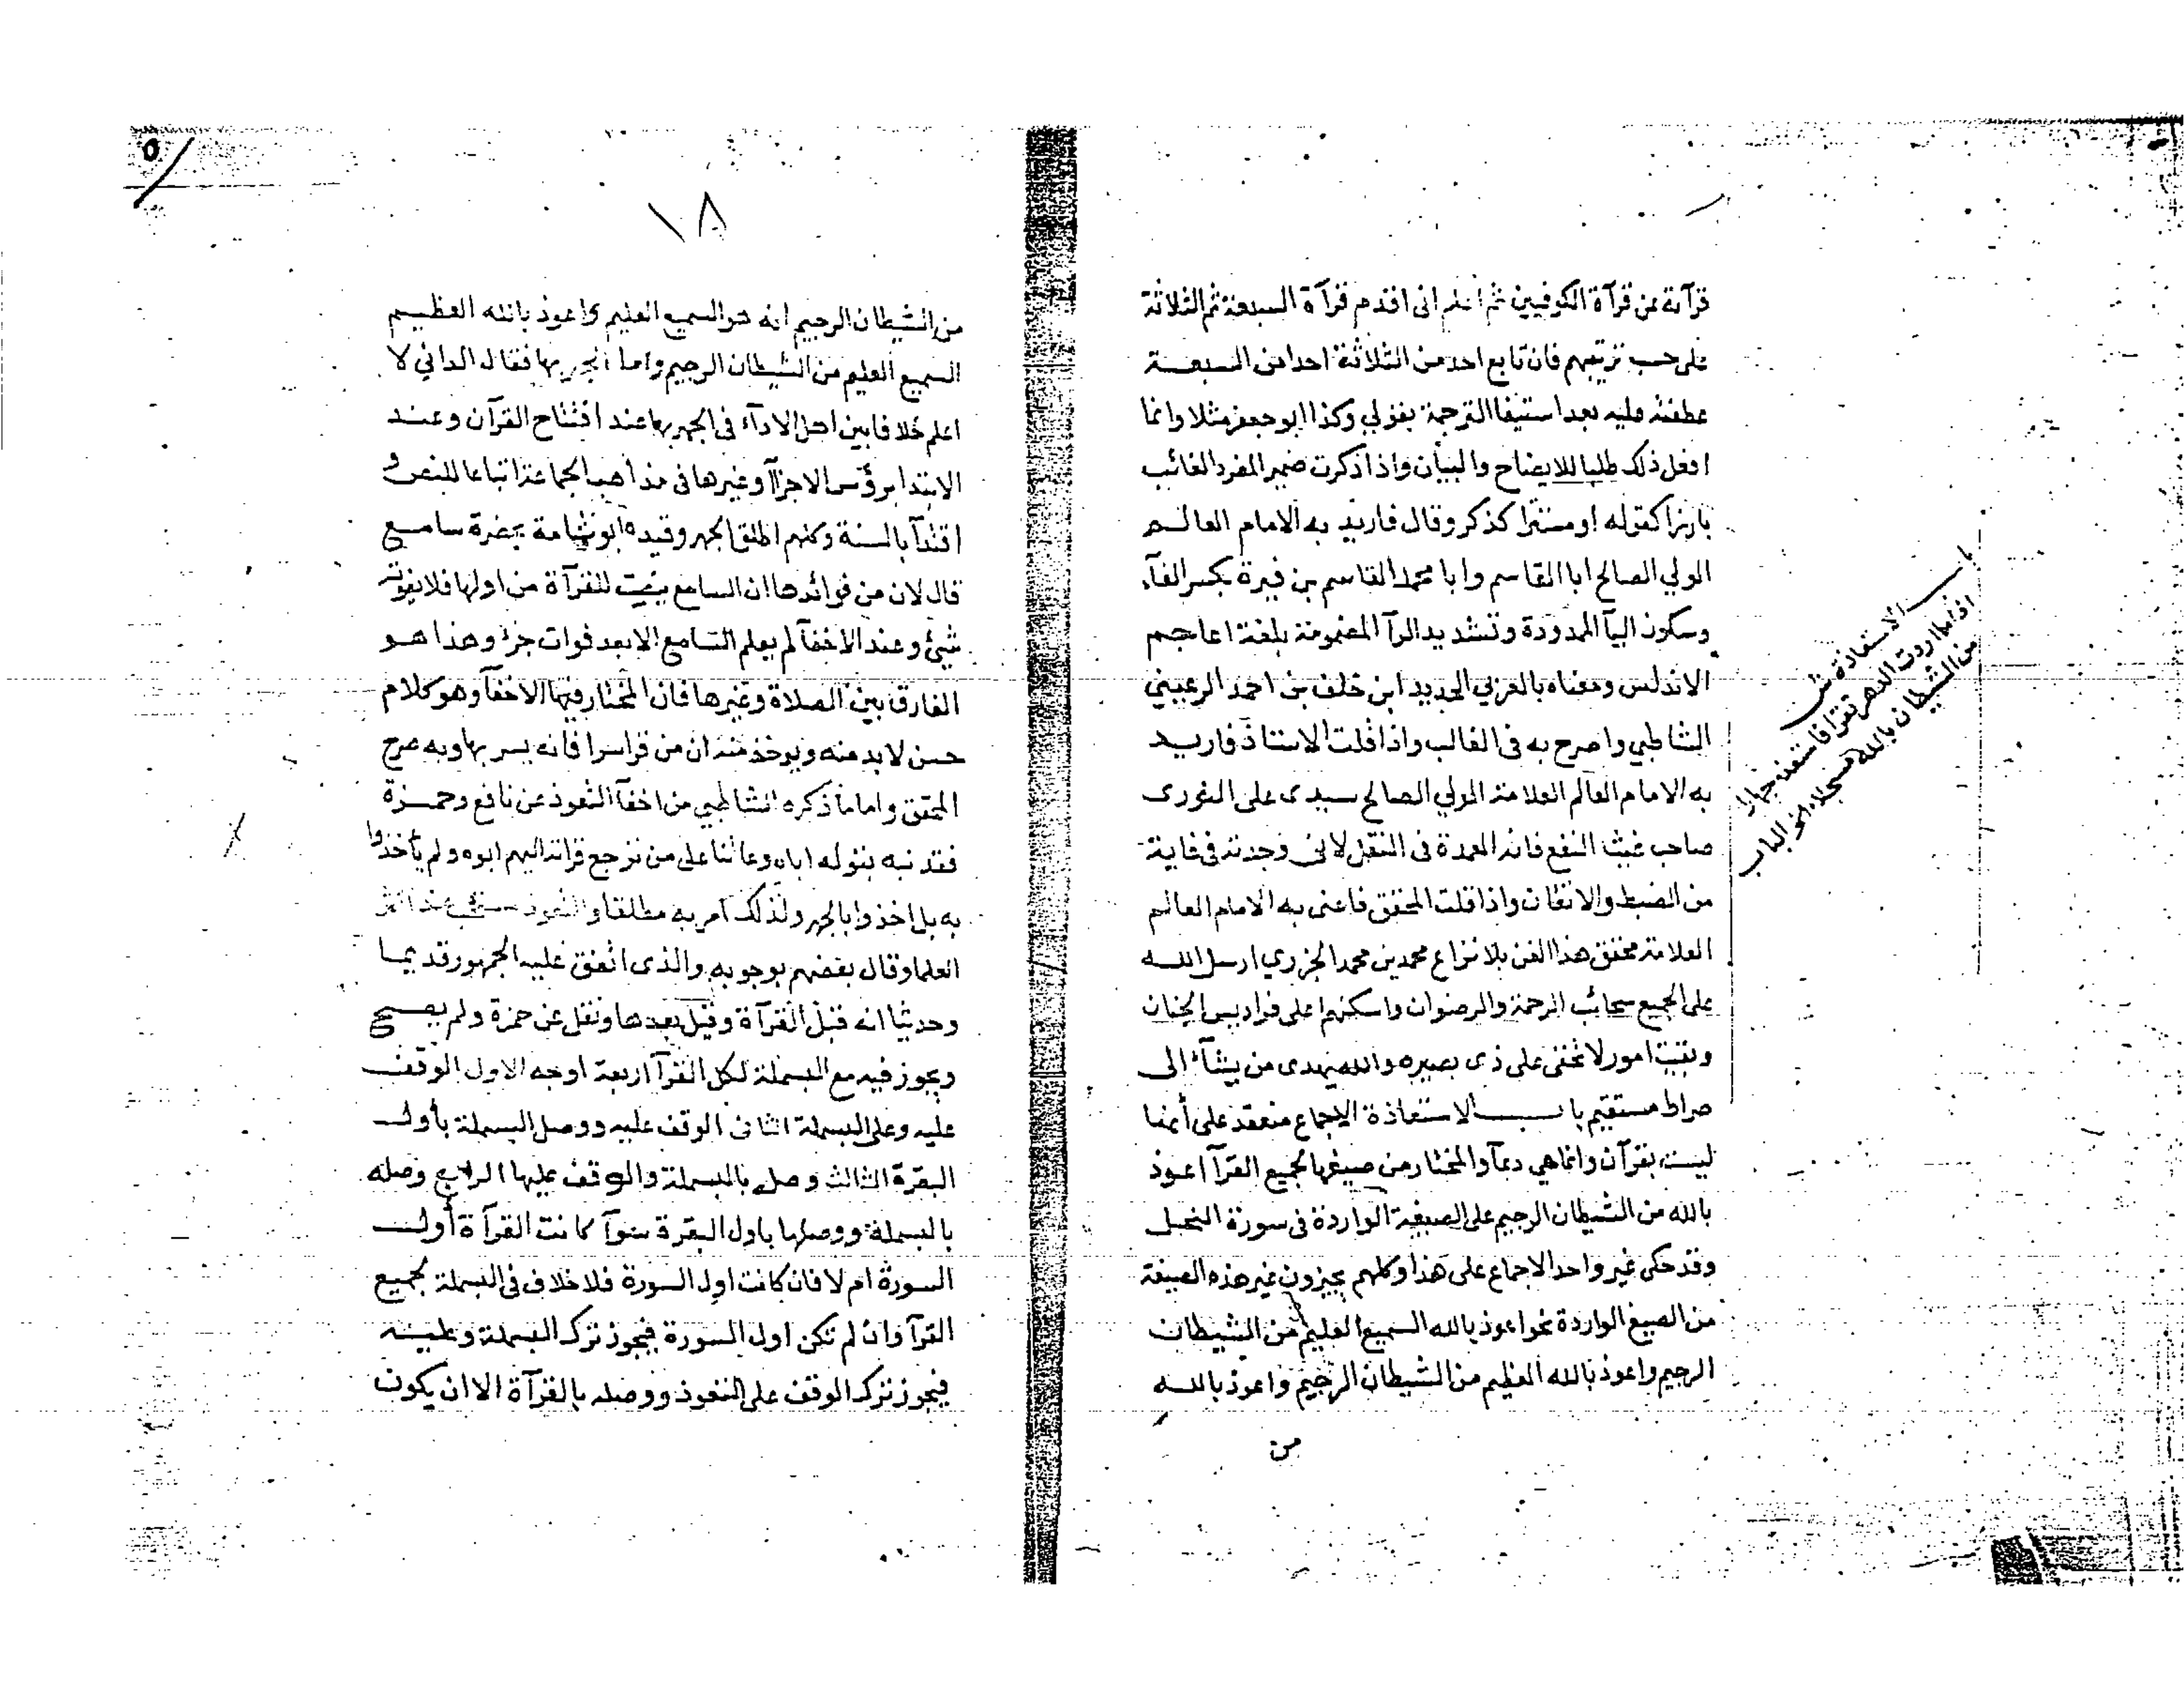 قرآته من قرآة الكوفيين ثم اعلم انى اقدم قرآة السبعة ثم الثلاثة
على حسب ترتيبهم فان تابع احد من الثلاثة احدا من السبعة
عطفته عليه بعد استيفا الترجمة بقولي وكذا ابو جعفر مثلا وانما
افعل ذلك طلبا للايضاح والبيان واذا ذكرت ضمير المفرد الغائب
بارزا كقوله او مستترا كذكر وقال فاريد به الامام العالم
الولي الصالح ابا القاسم وابا محمد القاسم بن فيرة بكسر الفآء
وسكون اليآ الممدودة وتشديد الرآ المضمومة بلغة اعاجم
الاندلس ومعناه بالعربي الحديد ابن خلف بن احمد الرعيني
الشاطبي واصرح به فى الغالب واذا قلت الاستاذ فاريد
به الامام العالم العلامة الولي الصالح سيدى على النورى
صاحب غيث النفع فانه العمدة فى النقل لانى وجدته فى غاية
من الضبط والاتقان واذا قلت المحقق فاعنى به الامام العالم
العلامة محقق هذا الفن بلا نزاع محمد بن محمد الجزري ارسل الله
على الجميع سحائب الرحمة والرضوان واسكنهم اعلى فراديس الجنان
وبقيت امور لا تخفى على ذى بصيره والله يهدى من يشآء الى
صراط مستقيم باب الاستعاذة الاجماع منعقد على أنها
ليست بقرآن وانما هي دعآ والمختار من صيغها لجميع القرآ اعوذ
بالله من الشيطان الرجيم على الصيغة الواردة فى سورة النحل
وقد حكى غير واحد الاجماع على هذا وكلهم يجيزون غير هذه الصيغة
من الصيغ الواردة نحو اعوذ بالله السميع العليم من الشيطان
الرجيم واعوذ بالله العظيم من الشيطان الرجيم واعوذ بالله
من
باب الاستعاذة ش
اذا ما اردت الدهر تقرا فاستعذ جهارا
من الشيطان بالله مسجلا الى اخر الباب
٥
١٨
من الشيطان الرجيم انه هو السميع العليم واعوذ بالله العظيم
السميع العليم من الشيطان الرجيم واما الجهر بها فقال الداني لا
اعلم خلافا بين اهل الادآء فى الجهر بها عند افتتاح القرآن وعند
الابتدا برؤس الاجزآ وغيرها فى مذاهب الجماعة اتباعا للنص و
اقتدآ بالسنة وكلهم اطلق الجهر وقيده ابو شامة بحضرة سامع
قال لان من فوائدها ان السامع ينصت للقرآة من اولها فلا يفوته
شيئ وعند الاخفآ لم يعلم السامع الا بعد فوات جزء وهذا هو
الفارق بين الصلاة وغيرها فان المختار فيها الاخفآ وهو كلام
حسن لا بد منه ويوخذ منه ان من قرا سرا فانه يسر بها وبه صرح
المحقق واما ما ذكره الشاطبي من اخفآ التعوذ عن نافع وحمزة
فقد نبه بقوله اباه وعاتنا على من ترجع قراته اليهم ابوه ولم يأخذوا
به بل اخذوا بالجهر ولذلك امر به مطلقا والتعوذ مستحب عند اكثر
العلما وقال بعضهم بوجوبه والذى اتفق عليه الجمهور قديما
وحديثا انه قبل القرآة وقيل بعدها ونقل عن حمزة ولم يصح
ويجوز فيه مع البسملة لكل القرآ اربعة اوجه الاول الوقف
عليه وعلى البسملة الثانى الوقف عليه ووصل البسملة بأول
البقرة الثالث وصله بالبسملة والوقف عليها الرابع وصله
بالبسملة ووصلها باول البقرة سوآ كانت القرآة أول
السورة ام لا فان كانت اول السورة فلا خلاف فى البسملة لجميع
القرآ وان لم تكن اول السورة فيجوز ترك البسملة وعليه
فيجوز ترك الوقف على التعوذ ووصله بالقرآة الا ان يكون